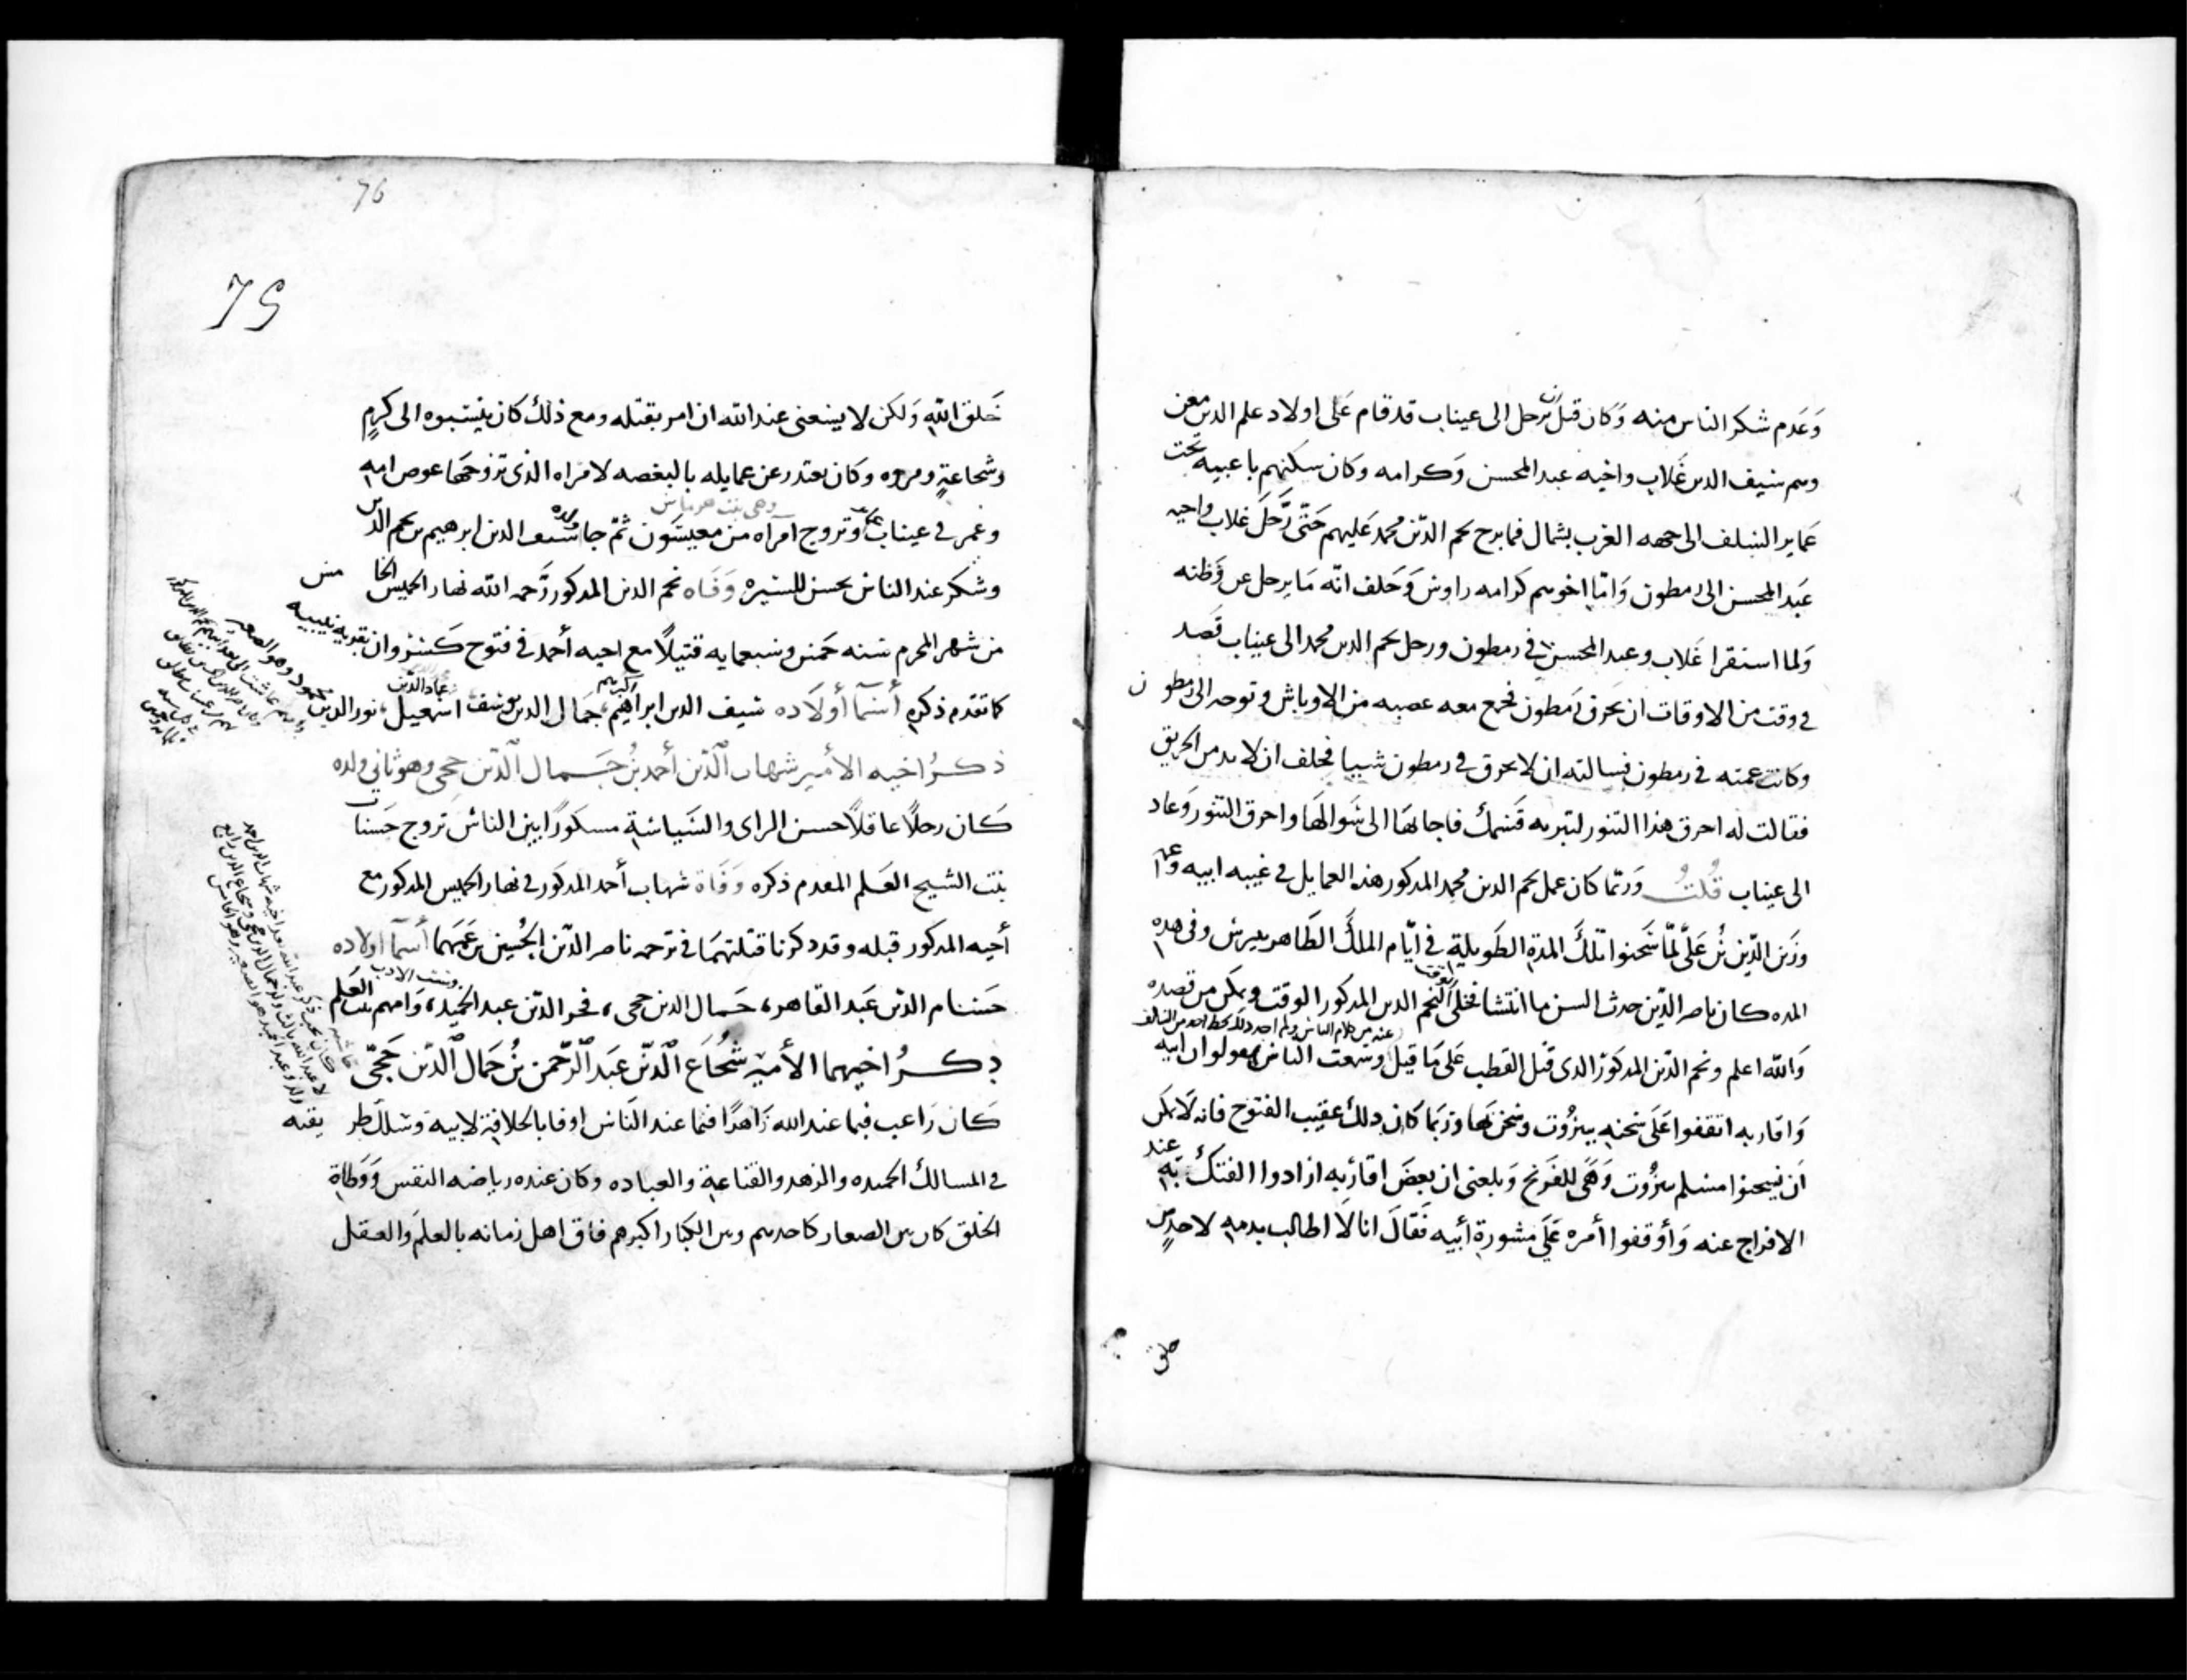 وَعَدم شكر الناس منه وَكان قبل يرحل الى عيناب قد قام عَلى اولاد علم الدين معن
وسم سيف الدين غَلاب واخيه عبد المحسن وَكرامه وكان سكنهم باعبيه تحت
عَماير السلف الى جهه الغرب بشمال فما برح نجم الدّين محمد عَليهم حَتّى رَحَل غلاب واخيه
عبَد المحسن الى رمطون وَامّا اخوهم كرامه راوش وَحَلف انّه مَا يرحل عن وَطنه
وَلما استقرا غَلاب وعبد المحسن في رمطون ورحل نجم الدين محمد الى عيناب قَصَد
في وقت من الاوقات ان يحَرق رَمطون فجمع معه عصبه من الاوباش وتوجه الى رمطون
وكانت عمته في رمطون فسالته ان لا يحرق في رمطون شييا فحلف ان لا بد من الحريق
فقالت له احرق هذا التنور لتبر به قَسَمك فاجابهَا الى سَوالهَا واحرق التنور وَعاد
الى عيناب قُلتُ وَربّما كان عمل نجم الدين محمد المذكور هذه العمايل في غيبه ابيه وعمه
وزَين الدّين بْن عَلىّ لمّا سَجنوا تلكَ المدة الطَويلة في ايّام الملكَ الظاهر بيبرس وفى هذه
المده كان ناصر الدّين حدث السن ما انتشا فخلى لنجم الدين المذكور الوقت وتمكن من قصده
عنه من كلام الناس ولم اجد ذلك بخط احد من السالف
وَالله اعلم ونجم الدّين المذكور الذى قتل القطب عَلى مَا قيل وَسمعت النَاس يقولوا ان ابيه
وَاقاربه اتفقوا عَلَى سجنه ببيرُوت وسُجن بهَا وَربَما كان ذلك عقيب الفتوح فانه لَا يمكن
اَن يسجنوا مسلم ببيرُوت وَهَى للفَرنج وَبلغنى ان بعضَ اقاربه ارادوا الفتكَ به عند
الافراج عنه وَأوقفوا أمره عَلَى مشورة أبيه فَقالَ انا لَا اطالب بدمه لاحدٍ من
خلق
76
75
خَلق الله وَلكن لا يسعنى عند الله ان امر بقتله ومع ذلكَ كان ينسَبوه الى كرمٍ
وشجاعةٍ ومروه وكان يعتذر عن عمايله بالبغصه لامراه الذى تزوجهَا عوص امه
وهى بنت هرماس
وعَمر في عيناب وتزوج امرَاه من معيسَون ثمّ جا ولده سيف الدين ابرهيم بن نجم الدين
وشكر عند الناس بحسن السيرة وَفَاه نجم الدين المذكور رَحمه الله نهار الخميس الخامس
من شهر المحرم سنه خمس وسبعمايه قتيلًا مع اخيه أحمد في فتوح كَسروان بقريه نيبيه
كما تقدم ذكره أسَمَا أولَاده سَيف الدين ابراهيم اكبرهم، جَمال الدين يوسف، عماد الدّين اسمعيل، نور الدين محمود وهو الصغير
ذكُر اخيه الأمير شهاب الَّدين أحمد بُن جَمال الَّدين حجى وهو ثاني ولده
كَان رجلًا عاقلًا حسن الراى والسَياسة مسكورًا بين الناس تزوج حَسنا
بنت الشيخ العَلم المقدم ذكره وَفَاة شهاب أحمد المذكور في نهار الخميس المذكور مع
أخيه المذكور قبله وقد ذكرنا قتلتهمَا في ترجمه ناصر الدّين الحُسين بن عَمهمَا أسَمَا اولاده
حسَام الدّين عَبد القاهر، جَمال الدين حجى، فخر الدّين عبد الحميد، وَامهم بنت العَلم
ذكُر اخيهما الأمير شُجَاع الَّدين عَبد الَّرحمن بْن جَمال الَّدين حَجىّ
كَان رَاغب فيما عند الله زَاهدًا فيما عند النَاس اوفا بالخلافة لابيه وَسَلك طريقته
في المسالكَ الحميده والزهد والقناعة والعباده وكان عنده رياضه النفس وَوَطاة
الخلق كان بين الصغار كاحدهم وبين الكبار اكبرهم فاق اهل زمانه بالعلمَ وَالعقل